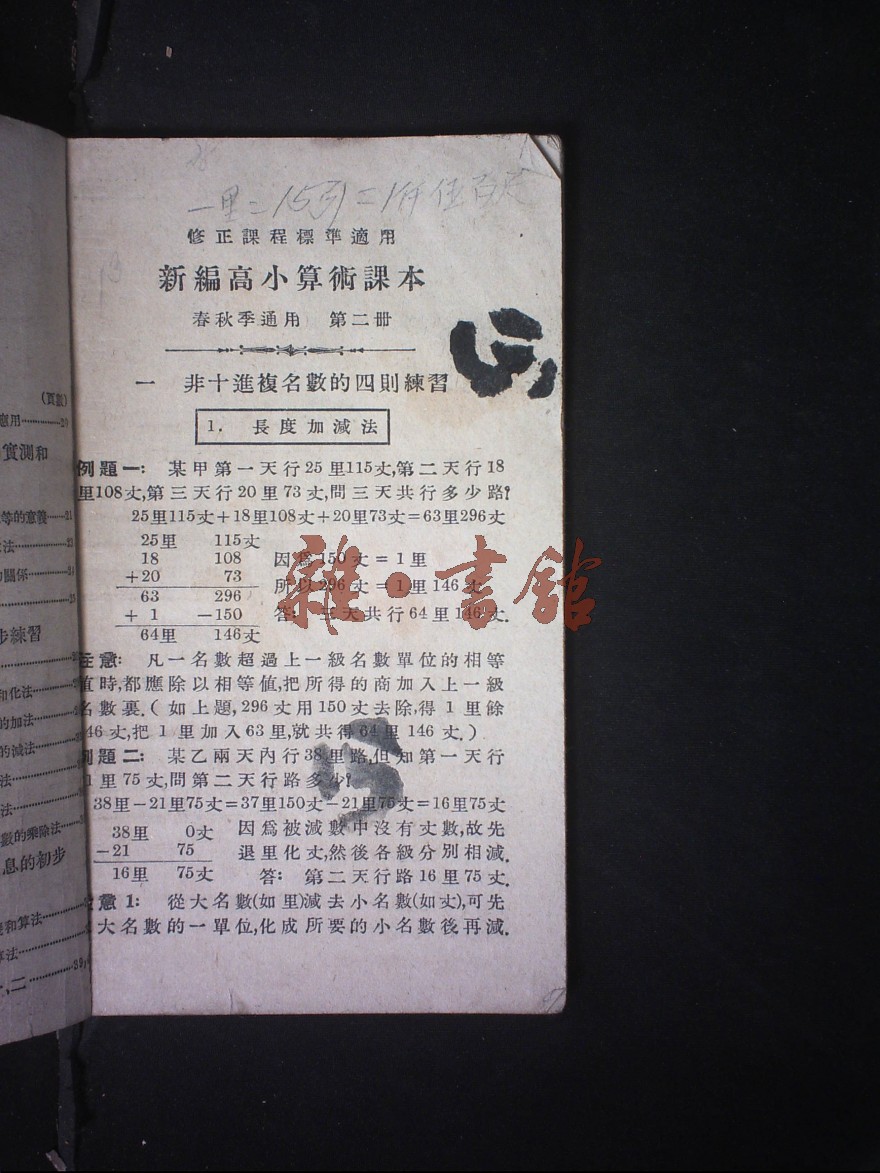 一里=15引=1仟伍百尺
修正課程標準適用
新編高小算術課本
春秋季通用 第二册
一 非十進複名數的四則練習
1. 長度加減法
例題一: 某甲第一天行25里115丈,第二天行18
里108丈,第三天行20里73丈,問三天共行多少路?
25里115丈+18里108丈+20里73丈=63里296丈
25里 115丈
18 108 因爲150丈=1里
+20 73
所以296丈=1里146丈
63 296
+ 1 -150 答: 三天共行64里146丈.
64里 146丈
注意: 凡一名數超過上一級名數單位的相等
值時,都應除以相等値,把所得的商加入上一級
名數裏.(如上題,296丈用150丈去除,得1里餘
146丈,把1里加入63里,就共得64里146丈.)
例題二: 某乙兩天內行38里路,但知第一天行
21里75丈,問第二天行路多少?
38里-21里75丈=37里150丈-21里75丈=16里75丈
38里 0丈 因爲被減數中沒有丈數,故先
-21 75 退里化丈,然後各級分別相減.
16里 75丈 答: 第二天行路16里75丈.
注意1: 從大名數(如里)減去小名數(如丈),可先
大名數的一單位,化成所要的小名數後再減.
雜·書館
(頁數)
應用……20
實測和
等的意義……21
法……23
關係……24
……25
步練習
和化法……
的加法……
的減法……
法……
法……
數的乘除法……
息的初步
和算法……
算法……
、二……39